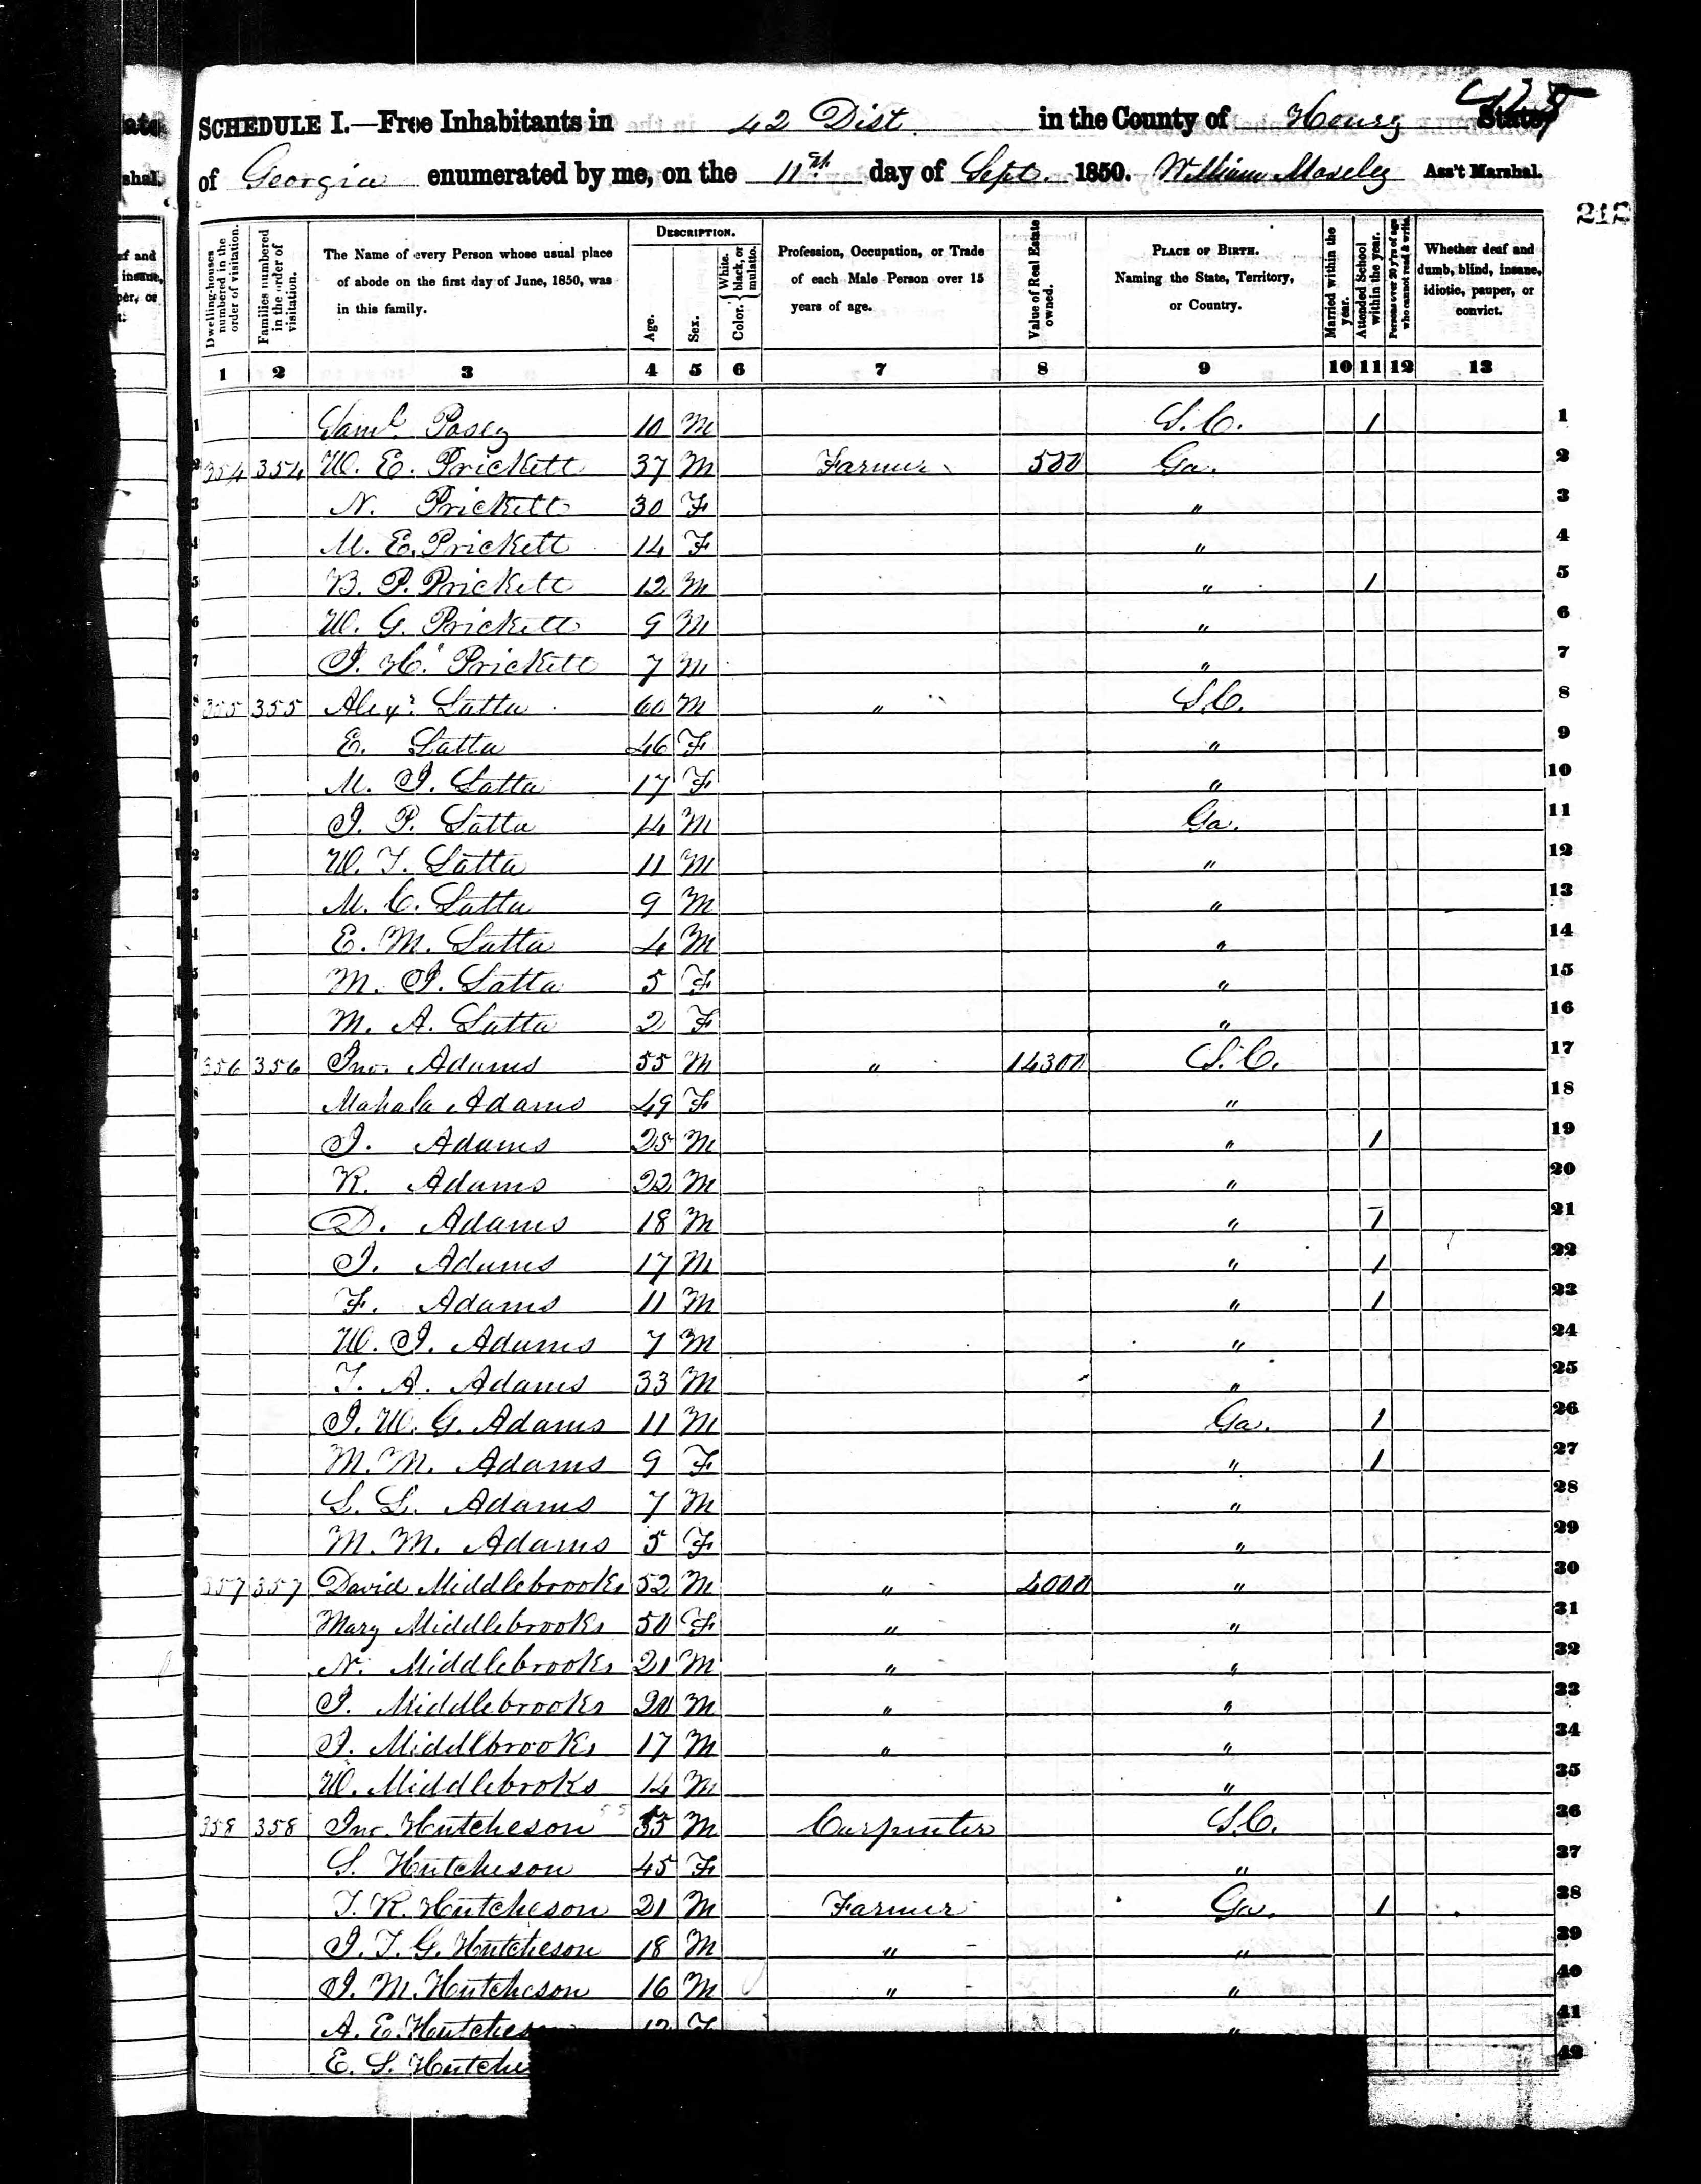 SCHEDULE I.—Free Inhabitants in 42 Dist. in the County of Henry State
of Georgia enumerated by me, on the 11th day of Sept. 1850. William Moseley Ass't Marshal.
212
Dwelling-houses numbered in the order of visitation.
Families numbered in the order of visitation.
The Name of every Person whose usual place of abode on the first day of June, 1850, was in this family.
DESCRIPTION.
Age.
Sex.
Color. { White, black, or mulatto.
Profession, Occupation, or Trade of each Male Person over 15 years of age.
Value of Real Estate owned.
PLACE OF BIRTH. Naming the State, Territory, or Country.
Married within the year.
Attended School within the year.
Persons over 20 y'rs of age who cannot read & write.
Whether deaf and dumb, blind, insane, idiotic, pauper, or convict.
1 2 3 4 5 6 7 8 9 10 11 12 13
Saml. Posey 10 M S.C. 1 1
354 354 W. E. Prickett 37 M Farmer 500 Ga. 2
N. Prickett 30 F " 3
M. E. Prickett 14 F " 4
B. P. Prickett 12 M " 1 5
W. G. Prickett 9 M " 6
J. H. Prickett 7 M " 7
355 355 Alexr. Latta 60 M " S.C. 8
E. Latta 46 F " 9
M. J. Latta 17 F " 10
J. P. Latta 14 M Ga. 11
W. T. Latta 11 M " 12
M. C. Latta 9 M " 13
E. M. Latta 4 M " 14
M. J. Latta 5 F " 15
M. A. Latta 2 F " 16
356 356 Jno. Adams 55 M " 14300 S.C. 17
Mahala Adams 49 F " 18
J. Adams 25 M " 1 19
R. Adams 22 M " 20
D. Adams 18 M " 1 21
J. Adams 17 M " 1 22
F. Adams 11 M " 1 23
W. J. Adams 7 M " 24
T. A. Adams 33 M " 25
J. W. G. Adams 11 M Ga. 1 26
M. M. Adams 9 F " 1 27
S. L. Adams 7 M " 28
M. M. Adams 5 F " 29
357 357 David Middlebrooks 52 M " 4000 " 30
Mary Middlebrooks 50 F " " 31
N. Middlebrooks 21 M " " 32
J. Middlebrooks 20 M " " 33
J. Middlbrooks 17 M " " 34
W. Middlebroks 14 M " 35
358 358 Jno. Hutcheson 55 M Carpenter S.C. 36
S. Hutcheson 45 F " 37
T. R. Hutcheson 21 M Farmer Ga. 1 38
J. T. G. Hutcheson 18 M " " 39
J. M. Hutcheson 16 M " " 40
A. E. Hutcheson 12 F " 41
E. S. Hutche 42